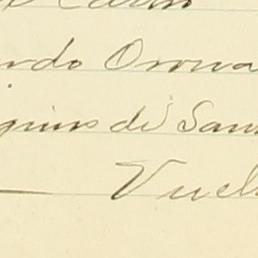 rdo Orona
quins de San
Vuel